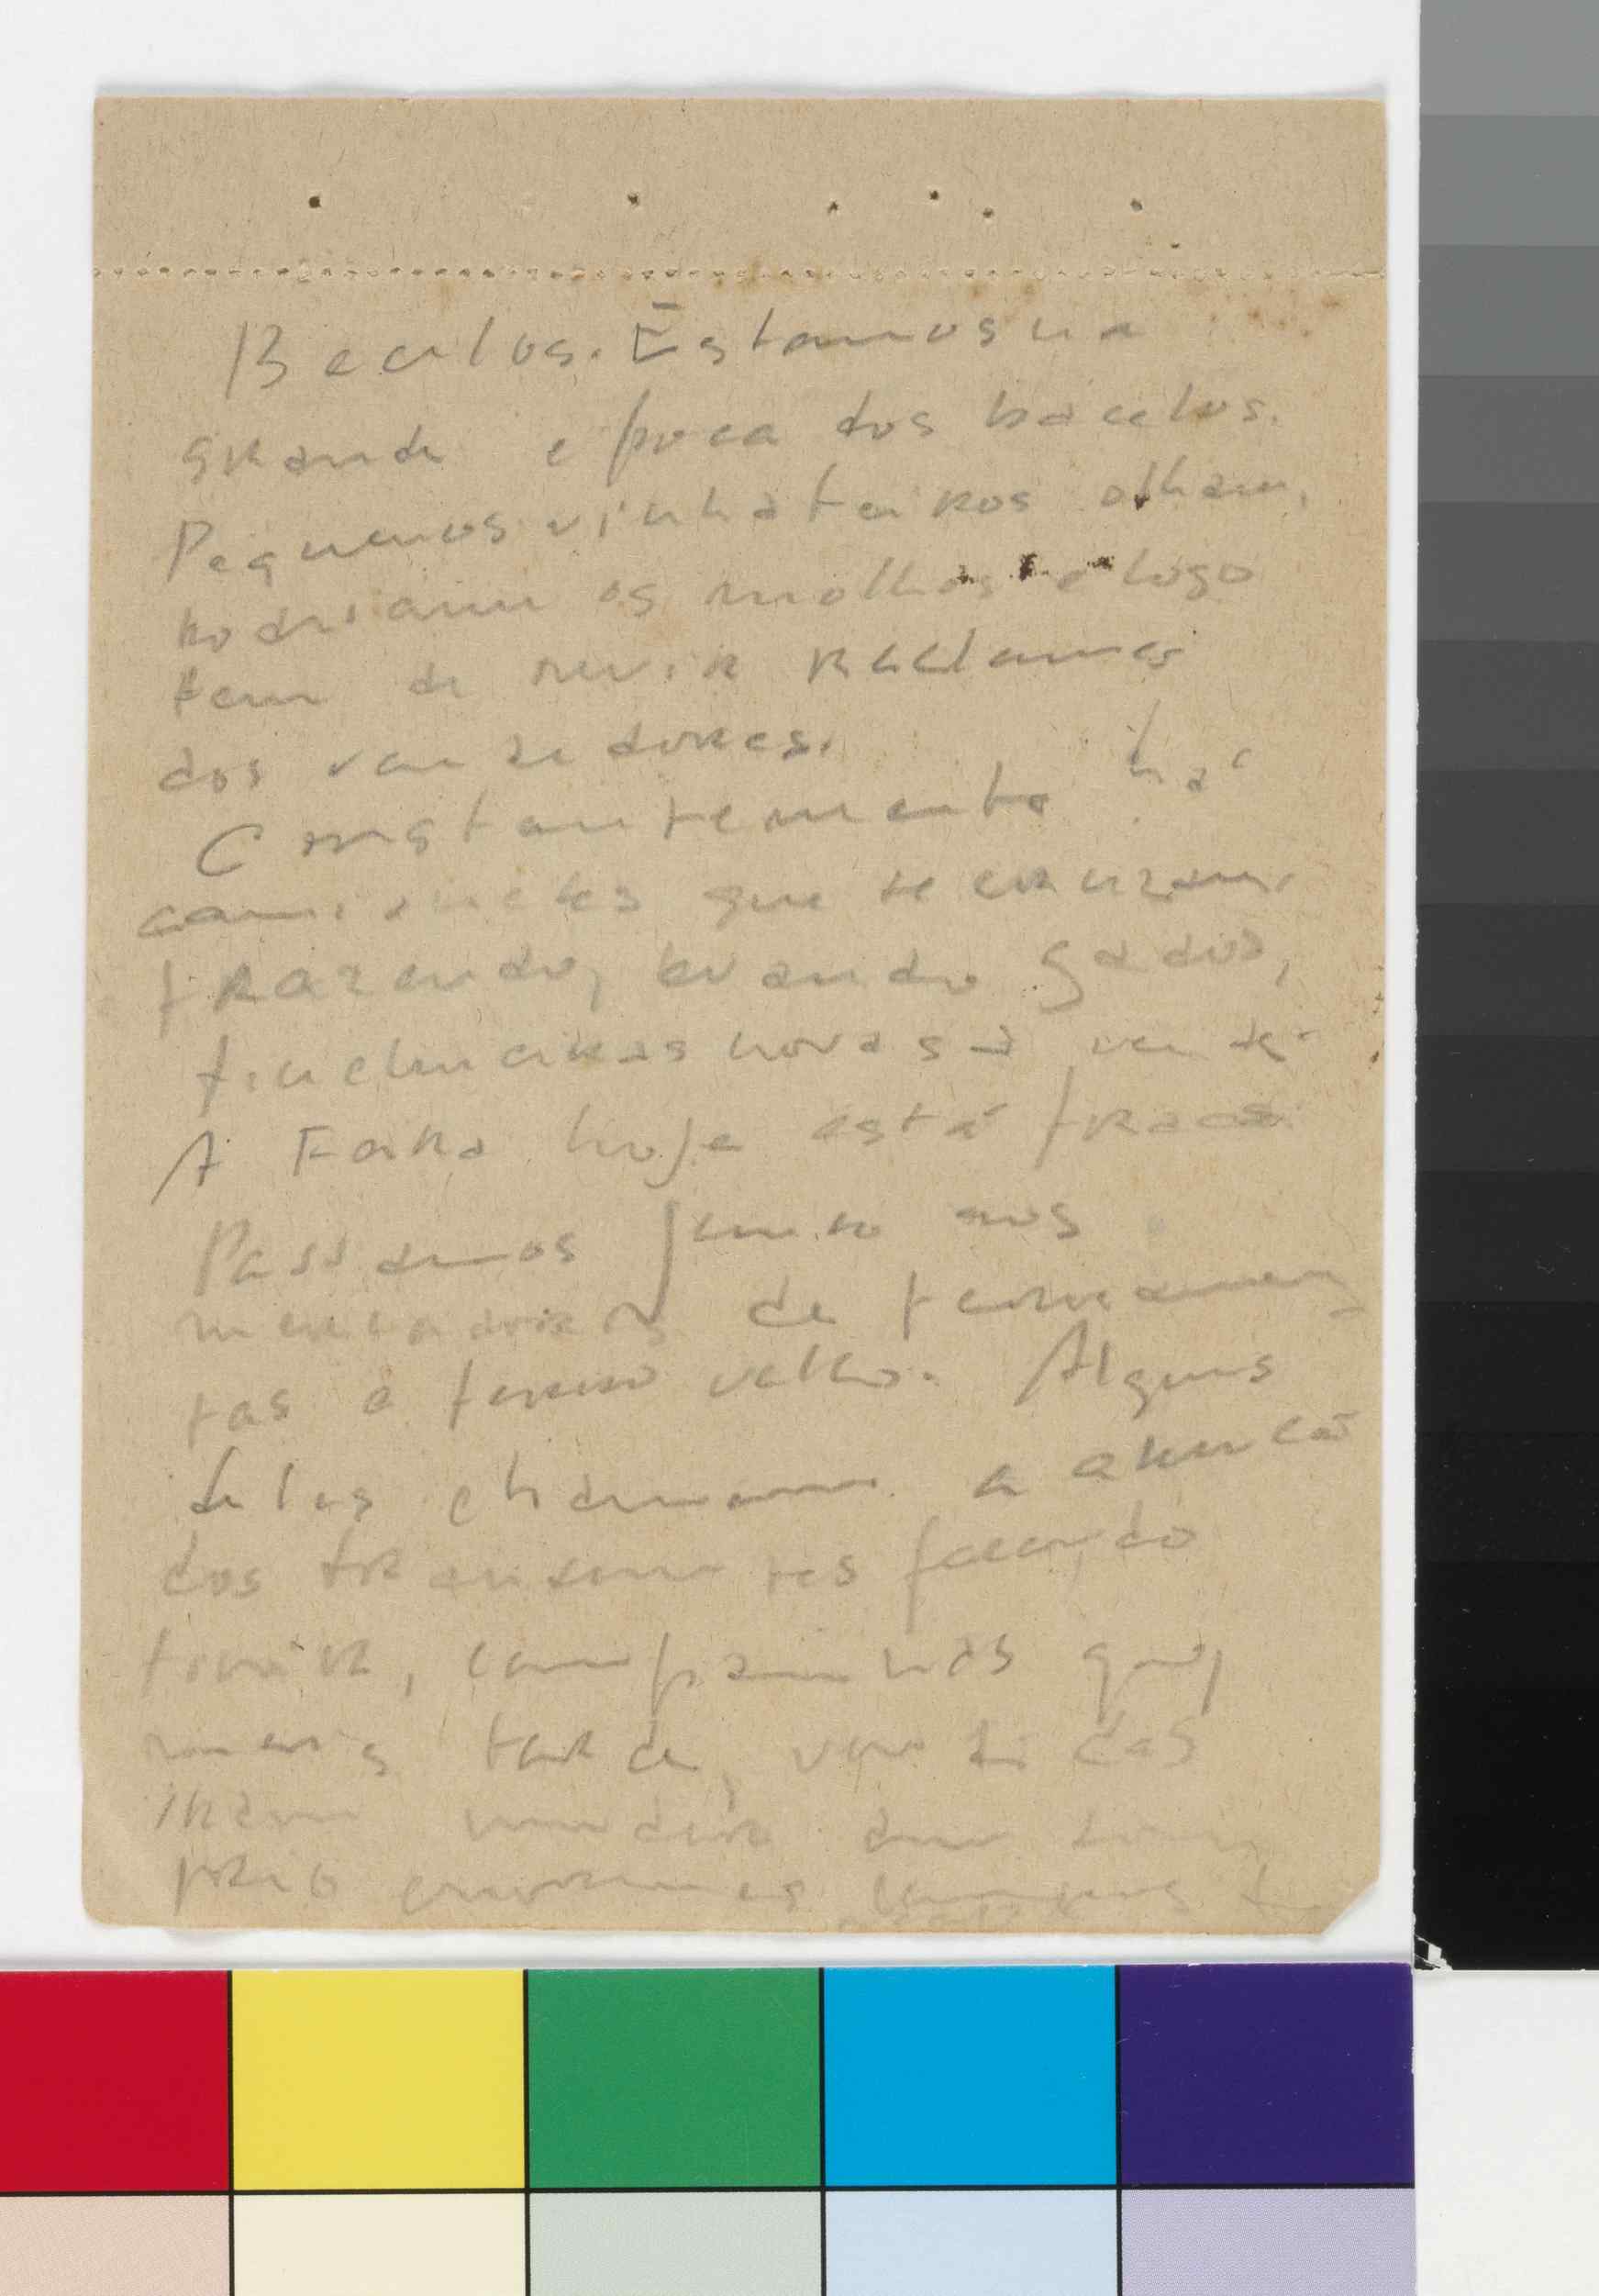 Bacelos. Estamos na
grande epoca dos bacelos.
Pequenos vinhateiros olham,
rodeiam os molhos e logo
tem de ouvir reclames
dos vendedores.
Constantemente há
camionetes que se cruzam,
trazendo, levando gados,
fincheiras novas a
A Feira hoje está fraca
Passamos junto aos
mercadores de ferramen
tas e ferro velho. Alguns
deles chamam a atenção
dos transeuntes fazendo
tinir, campainhas que,
mais tarde, vendidas
irão
enormes